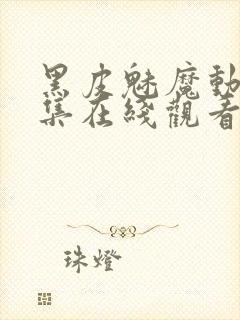 黑皮魅魔動
集在綫觀看
珠燈